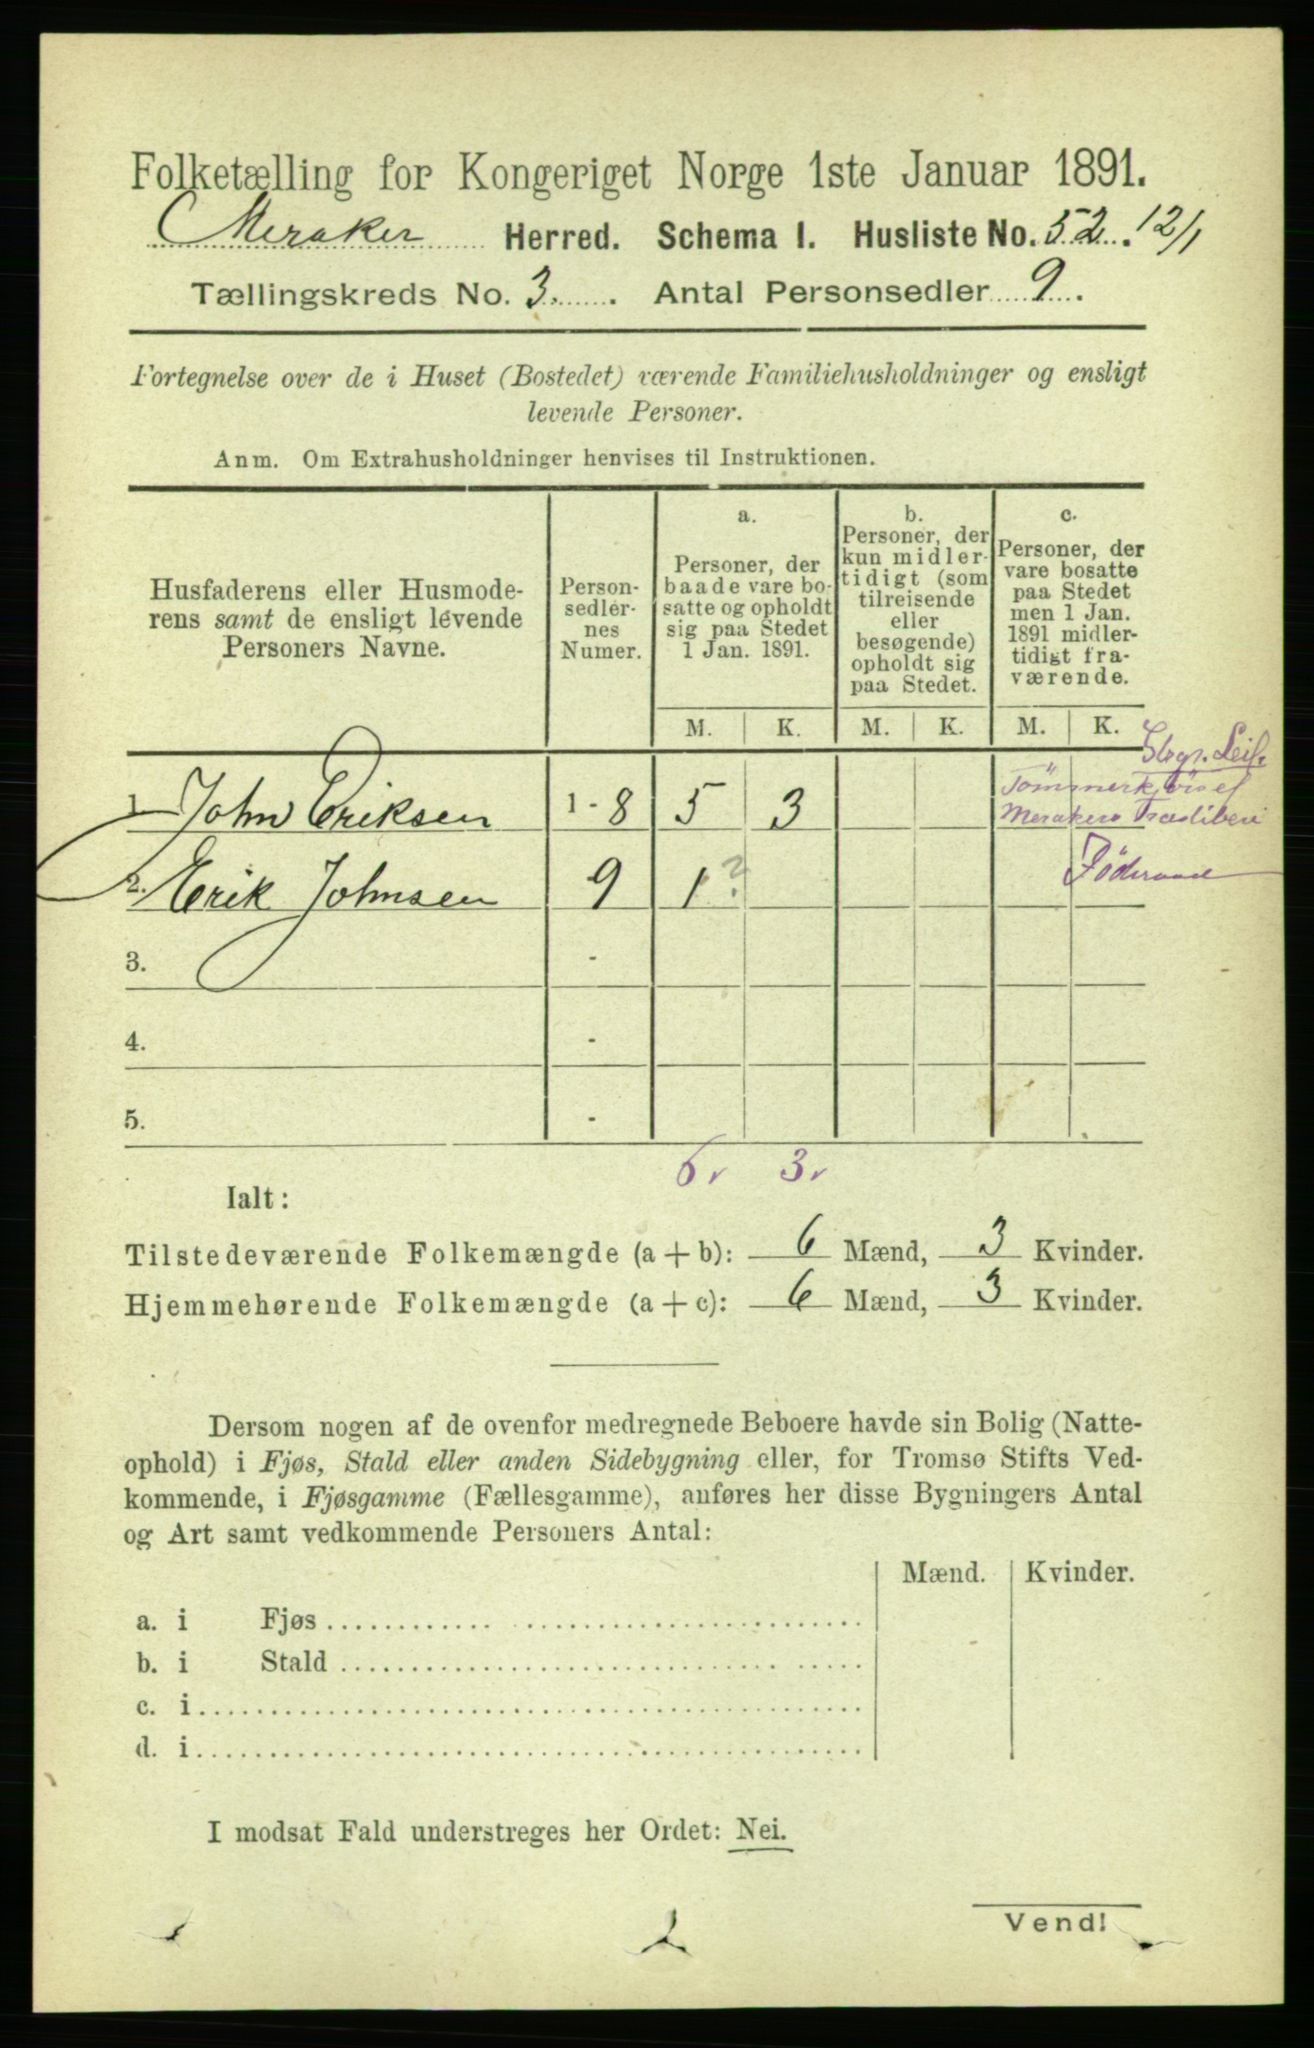 Folketælling for Kongeriget Norge 1ste Januar 1891.
Meraker Herred. Schema I. Husliste No. 52. 12/1
Tællingskreds No. 3. Antal Personsedler 9.
Fortegnelse over de i Huset (Bostedet) værende Familiehusholdninger og ensligt
levende Personer.
Anm. Om Extrahusholdninger henvises til Instruktionen.
Husfaderens eller Husmode-
rens samt de ensligt levende
Personers Navne.
Person-
sedler-
nes
Numer.
a.
Personer, der
baade vare bo-
satte og opholdt
sig paa Stedet
1 Jan. 1891.
b.
Personer, der
kun midler-
tidigt (som
tilreisende
eller
besøgende)
opholdt sig
paa Stedet.
c.
Personer, der
vare bosatte
paa Stedet
men 1 Jan.
1891 midler-
tidigt fra-
værende.
M. K. M. K. M. K.
1 John Eriksen 1 - 8 5 3
Merakers
2. Erik Johnsen 9 1 ?
3. -
4. -
5. -
6 3
Ialt:
Tilstedeværende Folkemængde (a + b): 6 Mænd, 3 Kvinder.
Hjemmehørende Folkemængde (a + c): 6 Mænd, 3 Kvinder.
Dersom nogen af de ovenfor medregnede Beboere havde sin Bolig (Natte-
ophold) i Fjøs, Stald eller anden Sidebygning eller, for Tromsø Stifts Ved-
kommende, i Fjøsgamme (Fællesgamme), anføres her disse Bygningers Antal
og Art samt vedkommende Personers Antal:
Mænd. Kvinder.
a. i Fjøs
b. i Stald
c. i
d. i
I modsat Fald understreges her Ordet: Nei.
Vend!